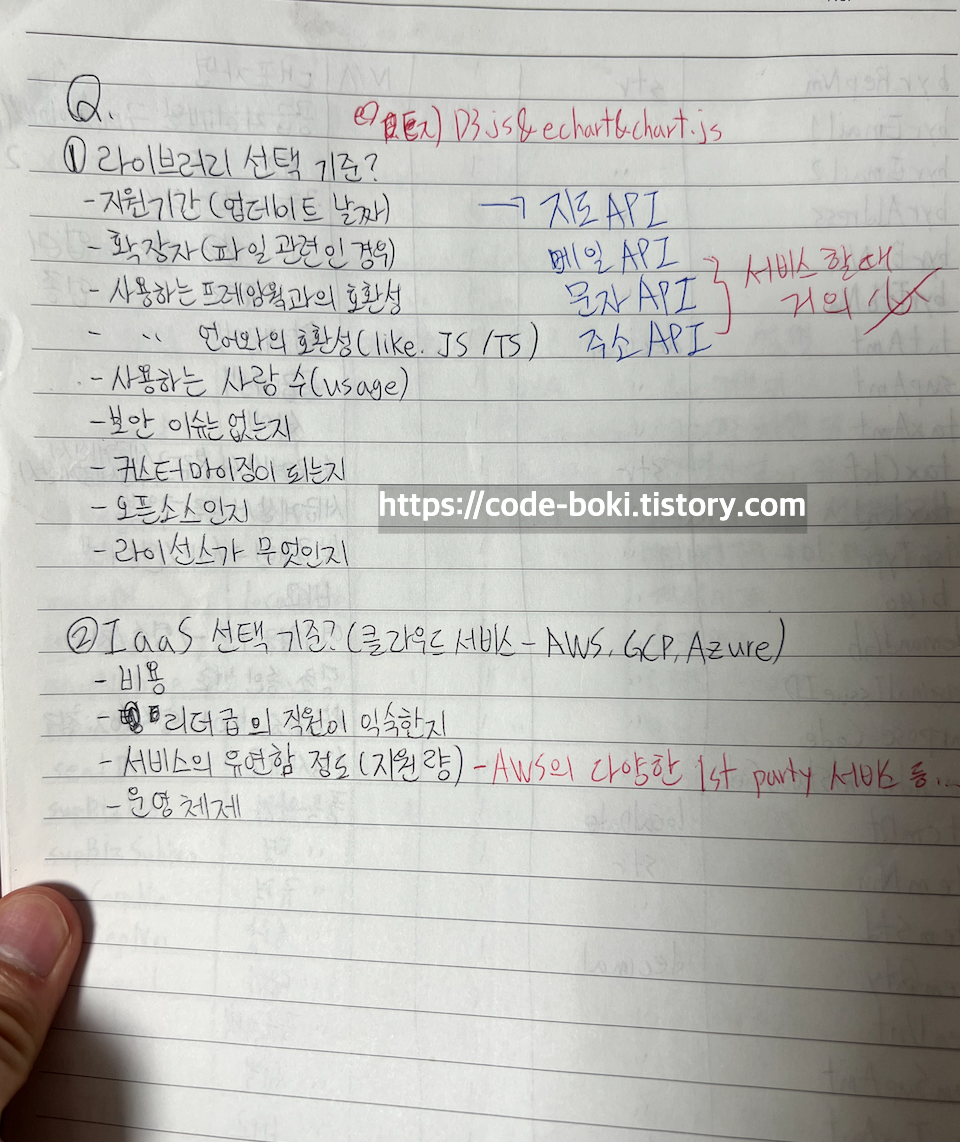 Q.
Ex) D3.js & echart & chart.js
① 라이브러리 선택 기준?
- 지원기간 (업데이트 날짜) → 지도 API
- 확장자 (파일 관련인 경우) 메일 API
- 사용하는 프레임웍과의 호환성 문자 API
- 〃 언어와의 호환성 (like. JS / TS) 주소 API
서비스 할 때
거의
- 사용하는 사람 수 (usage)
- 보안 이슈는 없는지
- 커스터마이징이 되는지
- 오픈소스인지
https://code-boki.tistory.com
- 라이선스가 무엇인지
② IaaS 선택 기준? (클라우드 서비스 - AWS, GCP, Azure)
- 비용
- 리더급의 직원이 익숙한지
- 서비스의 유연함 정도 (지원량) - AWS의 다양한 1st party 서비스 등...
- 운영체제